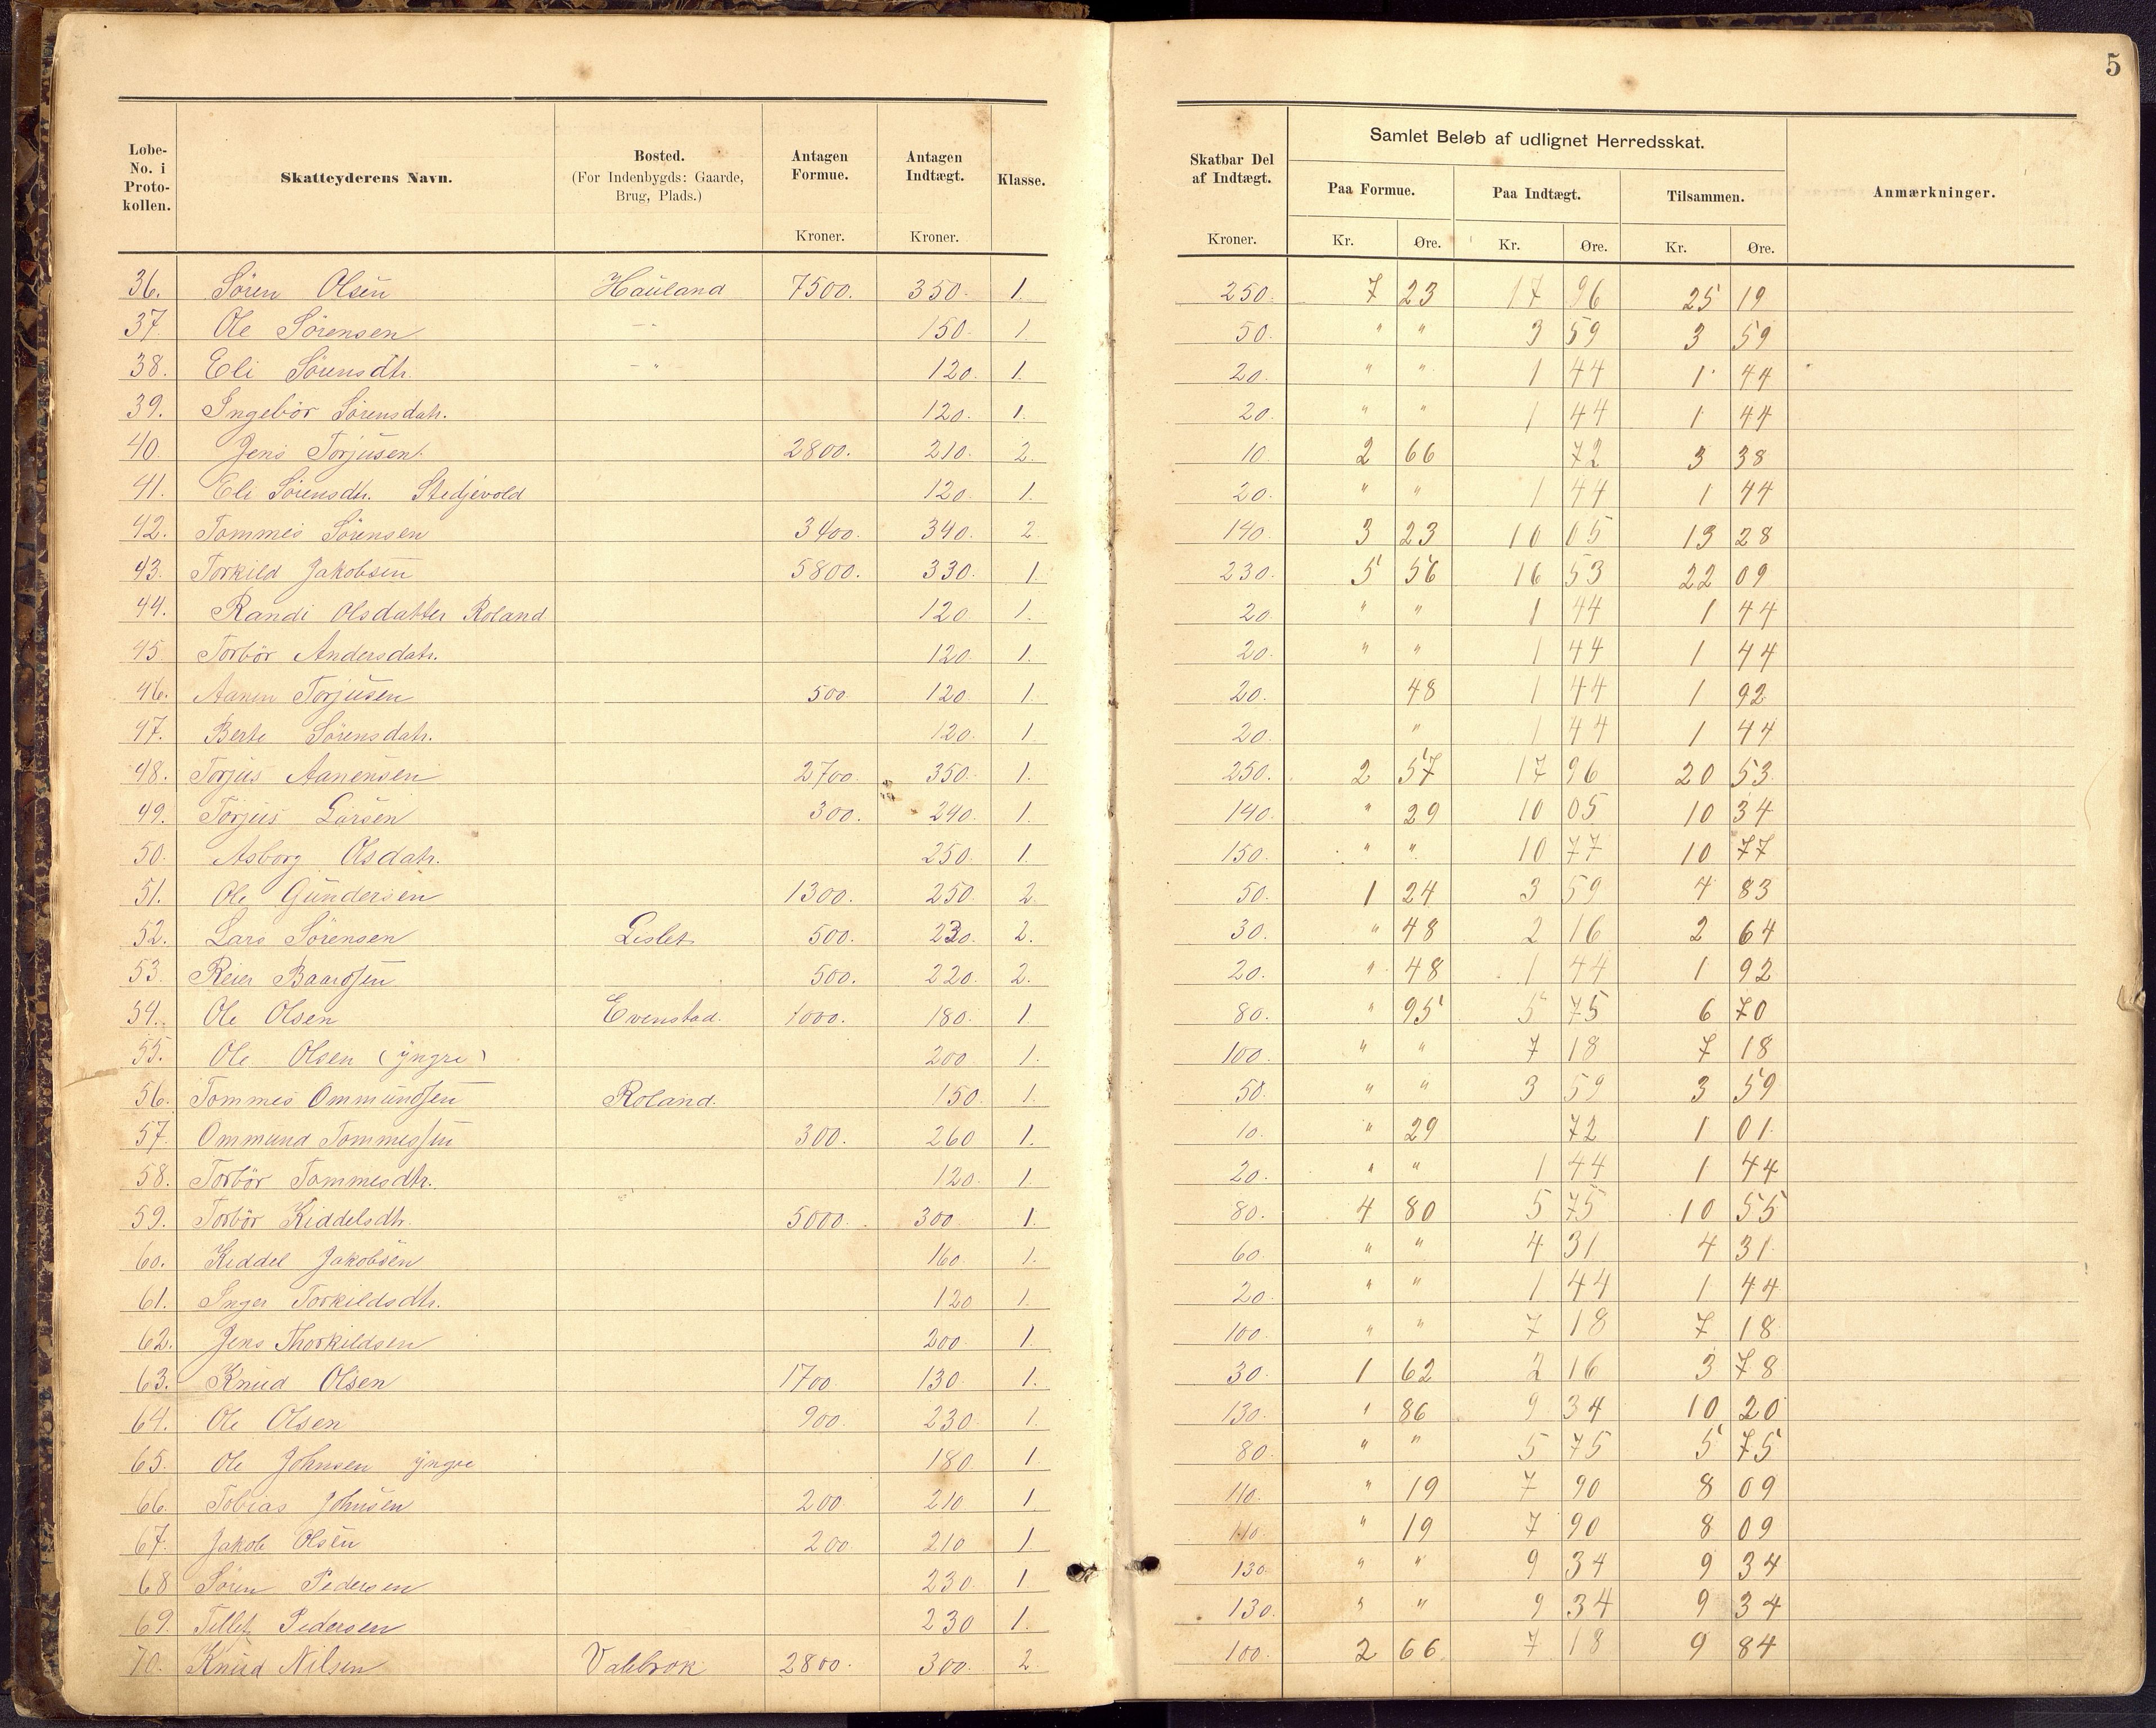 5
Løbe-No. i Proto-kollen. Skatteyderens Navn. Bosted. (For Indenbygds: Gaarde, Brug, Plads.) Antagen Formue. Kroner. Antagen Indtægt. Kroner. Klasse. Skatbar Del af Indtægt. Kroner. Samlet Beløb af udlignet Herredsskat. Paa Formue. Kr. Øre. Paa Indtægt. Kr. Øre. Tilsammen. Kr. Øre. Anmærkninger.
36. Sören Olsen Hauland 7500. 350. 1. 250. 7 23 17 96 25 19
37. Ole Sörensen -"- 150. 1. 50. " " 3 59 3 59
38. Eli Sörensdtr. -"- 120. 1. 20. " " 1 44 1 44
39. Ingebör Sörensdatr. 120. 1. 20. " " 1 44 1 44
40. Jens Torjusen 2800. 210. 2. 10. 2 66 72 3 38
41. Eli Sörensdtr. Stedjevold 120. 1. 20. " " 1 44 1 44
42. Tommes Sörensen 3400. 340. 2. 140. 3 23 10 05 13 28
43. Torkild Jakobsen 5800. 330. 1. 230. 5 56 16 53 22 09
44. Randi Olsdatter Roland 120. 1. 20. " " 1 44 1 44
45. Torbör Andersdatr. 120. 1. 20. " " 1 44 1 44
46. Aanen Torjusen 500. 120. 1. 20. 48 1 44 1 92
47. Berte Sörensdatr. 120. 1. 20. " 1 44 1 44
48. Torjus Aanensen 2700. 350. 1. 250. 2 57 17 96 20 53
49. Torjus Larsen 300. 240. 1. 140. " 29 10 05 10 34
50. Asborg Olsdatr. 250. 1. 150. " " 10 77 10 77
51. Ole Gundersen 1300. 250. 2. 50. 1 24 3 59 4 83
52. Lars Sörensen Lislet 500. 230. 2. 30. " 48 2 16 2 64
53. Reier Baardsen 500. 220. 2. 20. " 48 1 44 1 92
54. Ole Olsen Evenstad. 1000. 180. 1. 80. " 95 5 75 6 70
55. Ole Olsen (yngre) 200. 1. 100. " " 7 18 7 18
56. Tommes Ommundsen Roland. 150. 1. 50. " " 3 59 3 59
57. Ommund Tommessen 300. 260 1. 10. " 29 72 1 01
58. Torbör Tommesdtr. 120. 1. 20. " " 1 44 1 44
59. Torbör Kiddelsdtr. 5000. 300. 1. 80. 4 80 5 75 10 55
60. Keddel Jakobsen 160. 1. 60. " " 4 31 4 31
61. Inger Torkildsdtr. 120 1. 20. " " 1 44 1 44
62. Jens Thorkildsen 200. 1. 100. " " 7 18 7 18
63. Knud Olsen 1700 130. 1. 30. 1 62 2 16 3 78
64. Ole Olsen 900. 230. 1. 130. " 86 9 34 10 20
65. Ole Johnsen yngre 180. 1. 80. " " 5 75 5 75
66. Tobias Johnsen 200 210 1 110. " 19 7 90 8 09
67. Jakob Olsen 200 210 1 110. " 19 7 90 8 09
68 Sören Pedersen 230. 1 130. " " 9 34 9 34
69. Tellef Pedersen 230 1. 130. " " 9 34 9 34
70. Knud Nilsen Valebrok 2800. 300. 2. 100. 2 66 7 18 9 84